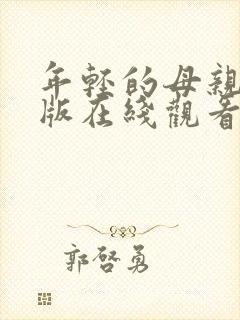 年轻的母親
版在綫觀看
郭啓勇